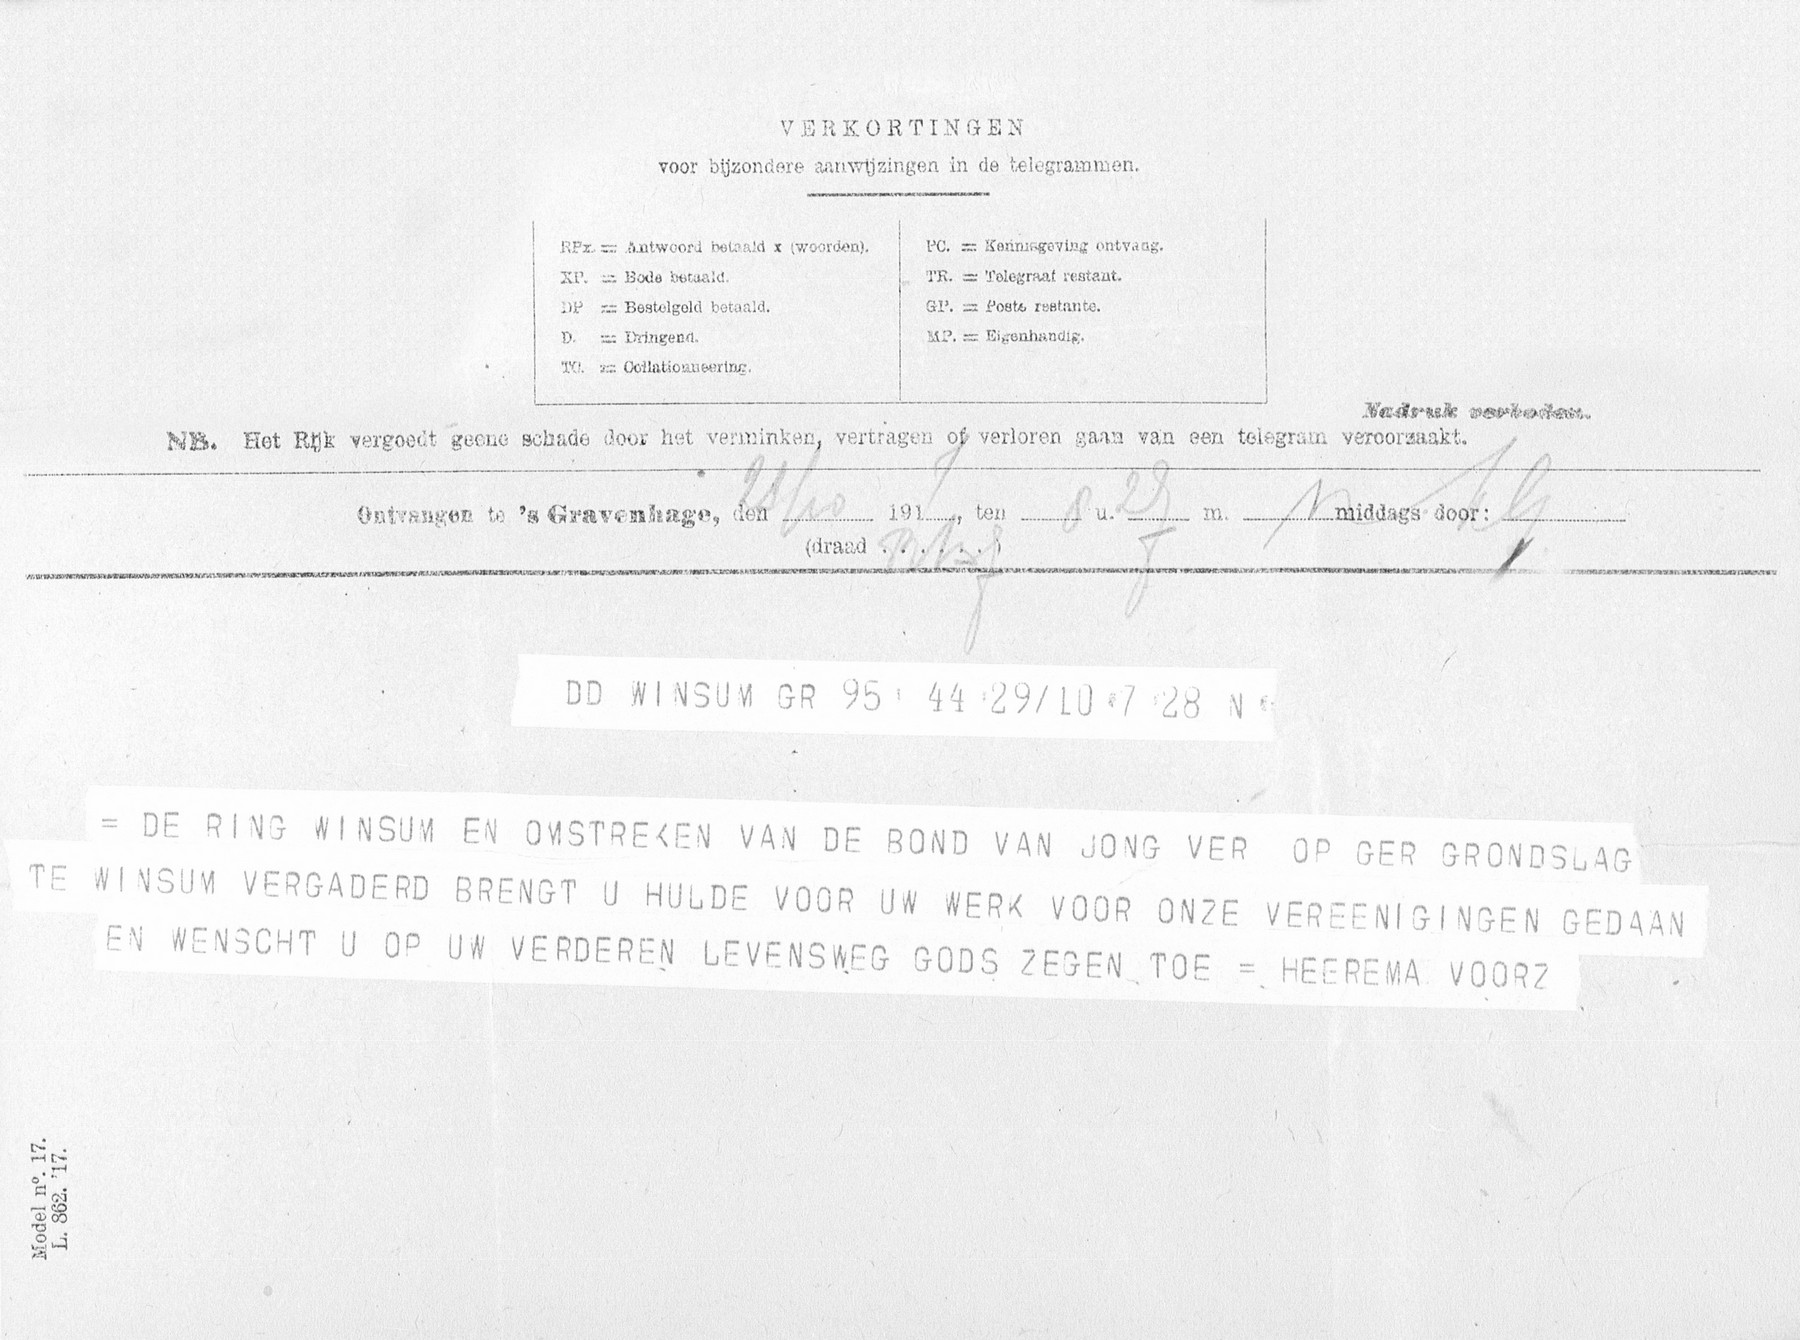 VERKORTINGEN
voor bijzondere aanwijzingen in de telegrammen.
RPx. = Antwoord betaald x (woorden).
XP. = Bode betaald.
DP = Bestelgeld betaald.
D. = Dringend.
TC. = Collationneering.
PC. = Kennisgeving ontvang.
TR. = Telegraaf restant.
GP. = Poste restante.
MP. = Eigenhandig.
Nadruk verboden.
NB. Het Rijk vergoedt geene schade door het verminken, vertragen of verloren gaan van een telegram veroorzaakt.
Ontvangen te 's Gravenhage, den 29/10 191 , ten 8 u. 27 m. N middags door:
(draad . . . . . . )
DD WINSUM GR 95 44 29/10 7 28 N
= DE RING WINSUM EN OMSTREKEN VAN DE BOND VAN JONG VER OP GER GRONDSLAG
TE WINSUM VERGADERD BRENGT U HULDE VOOR UW WERK VOOR ONZE VEREENIGINGEN GEDAAN
EN WENSCHT U OP UW VERDEREN LEVENSWEG GODS ZEGEN TOE = HEEREMA VOORZ
Model nº. 17.
L. 862. '17.